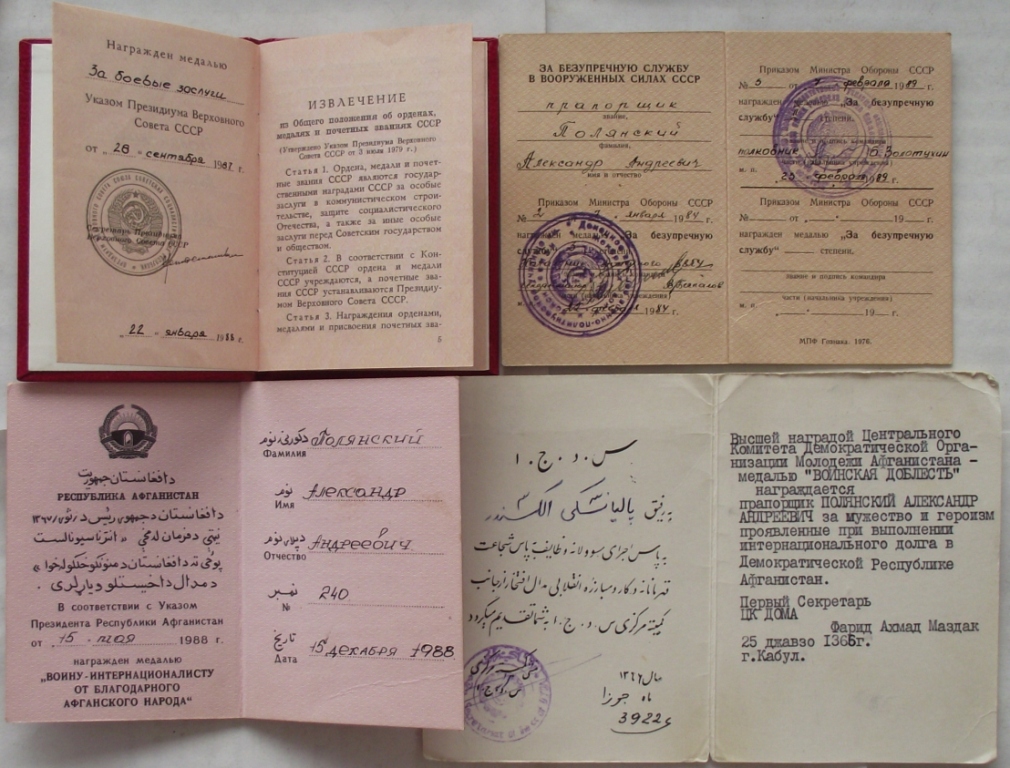 Награжден медалью
За боевые заслуги
Указом Президиума Верховного
Совета СССР
от „28“ сентября 1987 г.
Секретарь Президиума
Верховного Совета СССР
„22“ января 1988 г.
ИЗВЛЕЧЕНИЕ
из Общего положения об орденах,
медалях и почетных званиях СССР
(Утверждено Указом Президиума Верховного
Совета СССР от 3 июля 1979 г.)
Статья 1. Ордена, медали и почет-
ные звания СССР являются государст-
венными наградами СССР за особые
заслуги в коммунистическом строи-
тельстве, защите социалистического
Отечества, а также за иные особые
заслуги перед Советским государством
и обществом.
Статья 2. В соответствии с Кон-
ституцией СССР ордена и медали
СССР учреждаются, а почетные зва-
ния СССР устанавливаются Президиу-
мом Верховного Совета СССР.
Статья 3. Награждения орденами,
медалями и присвоения почетных зва-
5
ЗА БЕЗУПРЕЧНУЮ СЛУЖБУ
В ВООРУЖЕННЫХ СИЛАХ СССР
прапорщик
звание,
Полянский
фамилия,
Александр Андреевич
имя и отчество
Приказом Министра Обороны СССР
№ 2 января 1984 г.
награжден медалью „За безупречную
службу“
1984 г.
Приказом Министра Обороны СССР
№ 5 февраля 1989 г.
награжден „За безупречную
службу“ степени.
полковник В. Золотухин
части (начальника учреждения)
м. п. 23 февраля 1989 г.
Приказом Министра Обороны СССР
№ от „ “ 19 г.
награжден медалью „За безупречную
службу“ степени.
звание и подпись командира
части (начальника учреждения)
м. п. „ “ 19 г.
МПФ Гознака. 1976.
دافغانستان جمهوریت
РЕСПУБЛИКА АФГАНИСТАН
В соответствии с Указом
Президента Республики Афганистан
от 15 мая 1988 г.
награжден медалью
„ВОИНУ-ИНТЕРНАЦИОНАЛИСТУ
ОТ БЛАГОДАРНОГО
АФГАНСКОГО НАРОДА“
دکورنۍ نوم Полянский
Фамилия
نوم Александр
Имя
دپلار نوم Андреевич
Отчество
نمبر 240
№
تاریخ 15 декабря 1988
Дата
س . د . ج . ا
به رفیق پالیانسکی الکسندر
به پاس اجرای مسوولانه وظایف به پاس شجاعت
قهرمانانه در کار و مبارزه انقلابی مدال افتخار از جانب
کمیته مرکزی س . د . ج . ا به شما تقدیم میگردد
سال ۱۳۶۶
ماه جوزا
3922
Высшей наградой Центрального
Комитета Демократической Орга-
низации Молодежи Афганистана -
медалью "ВОИНСКАЯ ДОБЛЕСТЬ"
награждается
прапорщик ПОЛЯНСКИЙ АЛЕКСАНДР
АНДРЕЕВИЧ за мужество и героизм
проявленные при выполнении
интернационального долга в
Демократической Республике
Афганистан.
Первый Секретарь
ЦК ДОМА
Фарид Ахмад Маздак
25 джавзо 1366г.
г.Кабул.